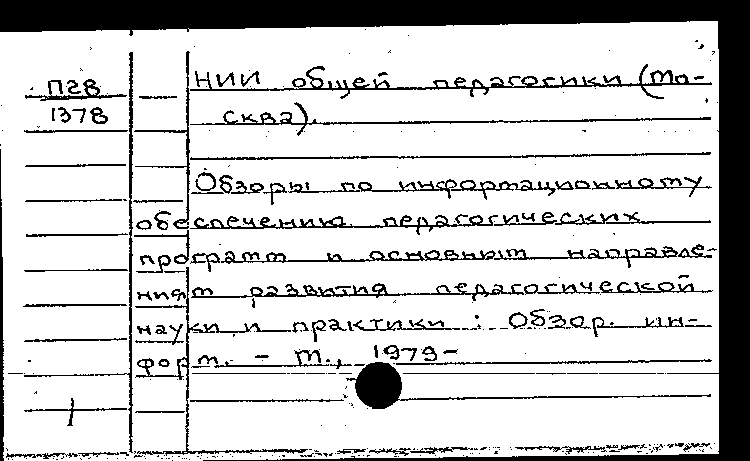 П28
1378
НИИ общей педагогики (Мо-
сква).
Обзоры по информационному
обеспечению педагогических
программ и основным направле-
ниям развития педагогической
науки и практики : Обзор. ин-
форм. - М., 1979-
1